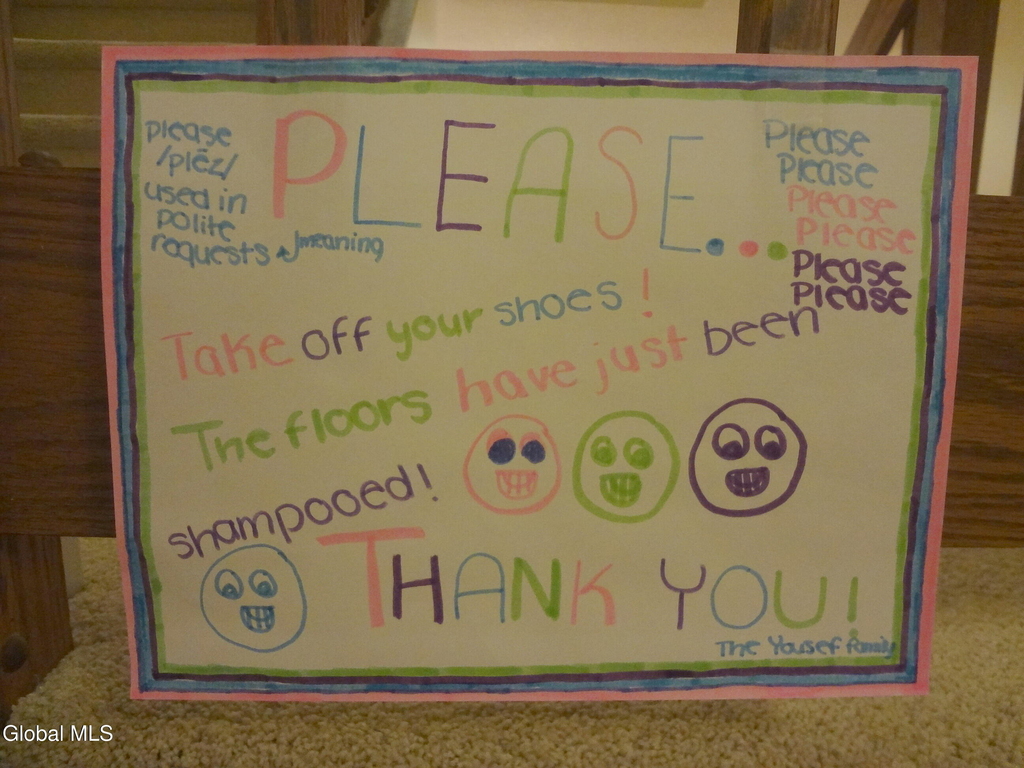 please
/plēz/
used in
polite
requests
meaning
PLEASE...
Please
Please
Please
Please
Please
Please
Take off your shoes!
The floors have just been
shampooed!
THANK YOU!
The Yousef family
Global MLS